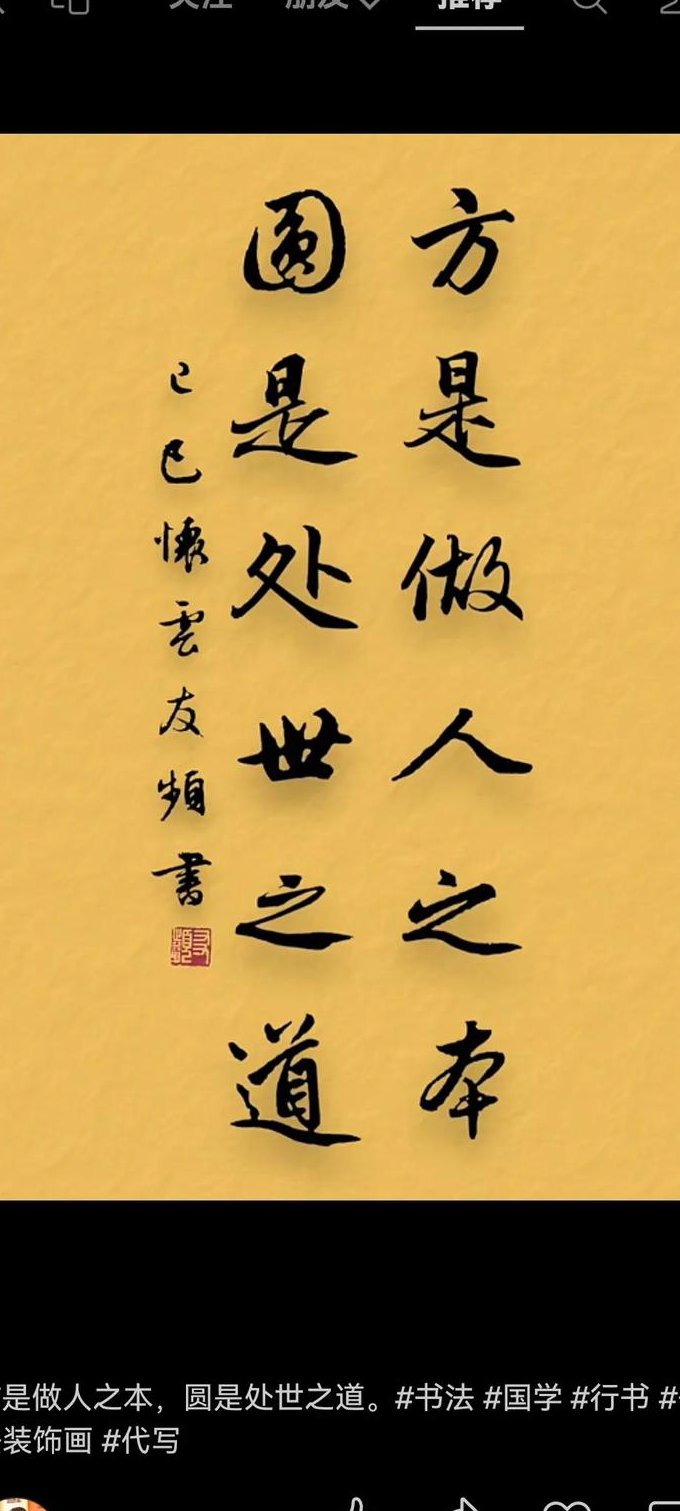 关注 朋友 推荐
方是做人之本
圆是处世之道
己巳懷雲友頻書
是做人之本，圆是处世之道。#书法 #国学 #行书 #
装饰画 #代写